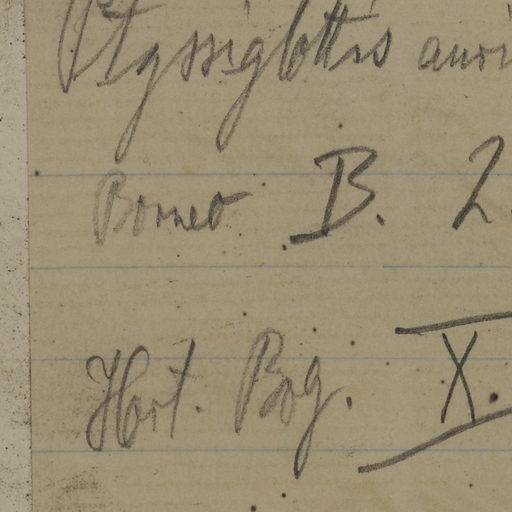 Ptyssiglottis auri
Borneo B. 2.
Hort. Bog. X.